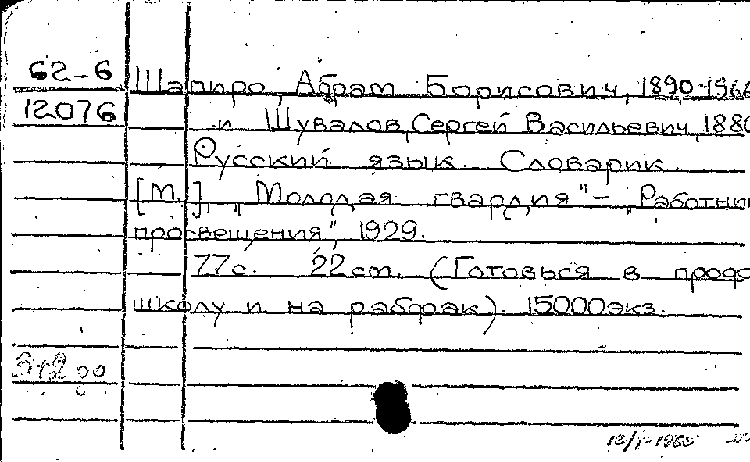 62-6 Шапиро, Абрам Борисович, 1890-1966
12076 и Шувалов, Сергей Васильевич, 1880
Русский язык. Словарик.
[М.], "Молодая гвардия" – "Работник
просвещения", 1929.
77с. 22см. (Готовься в профо
школу и на рабфак). 15000экз.